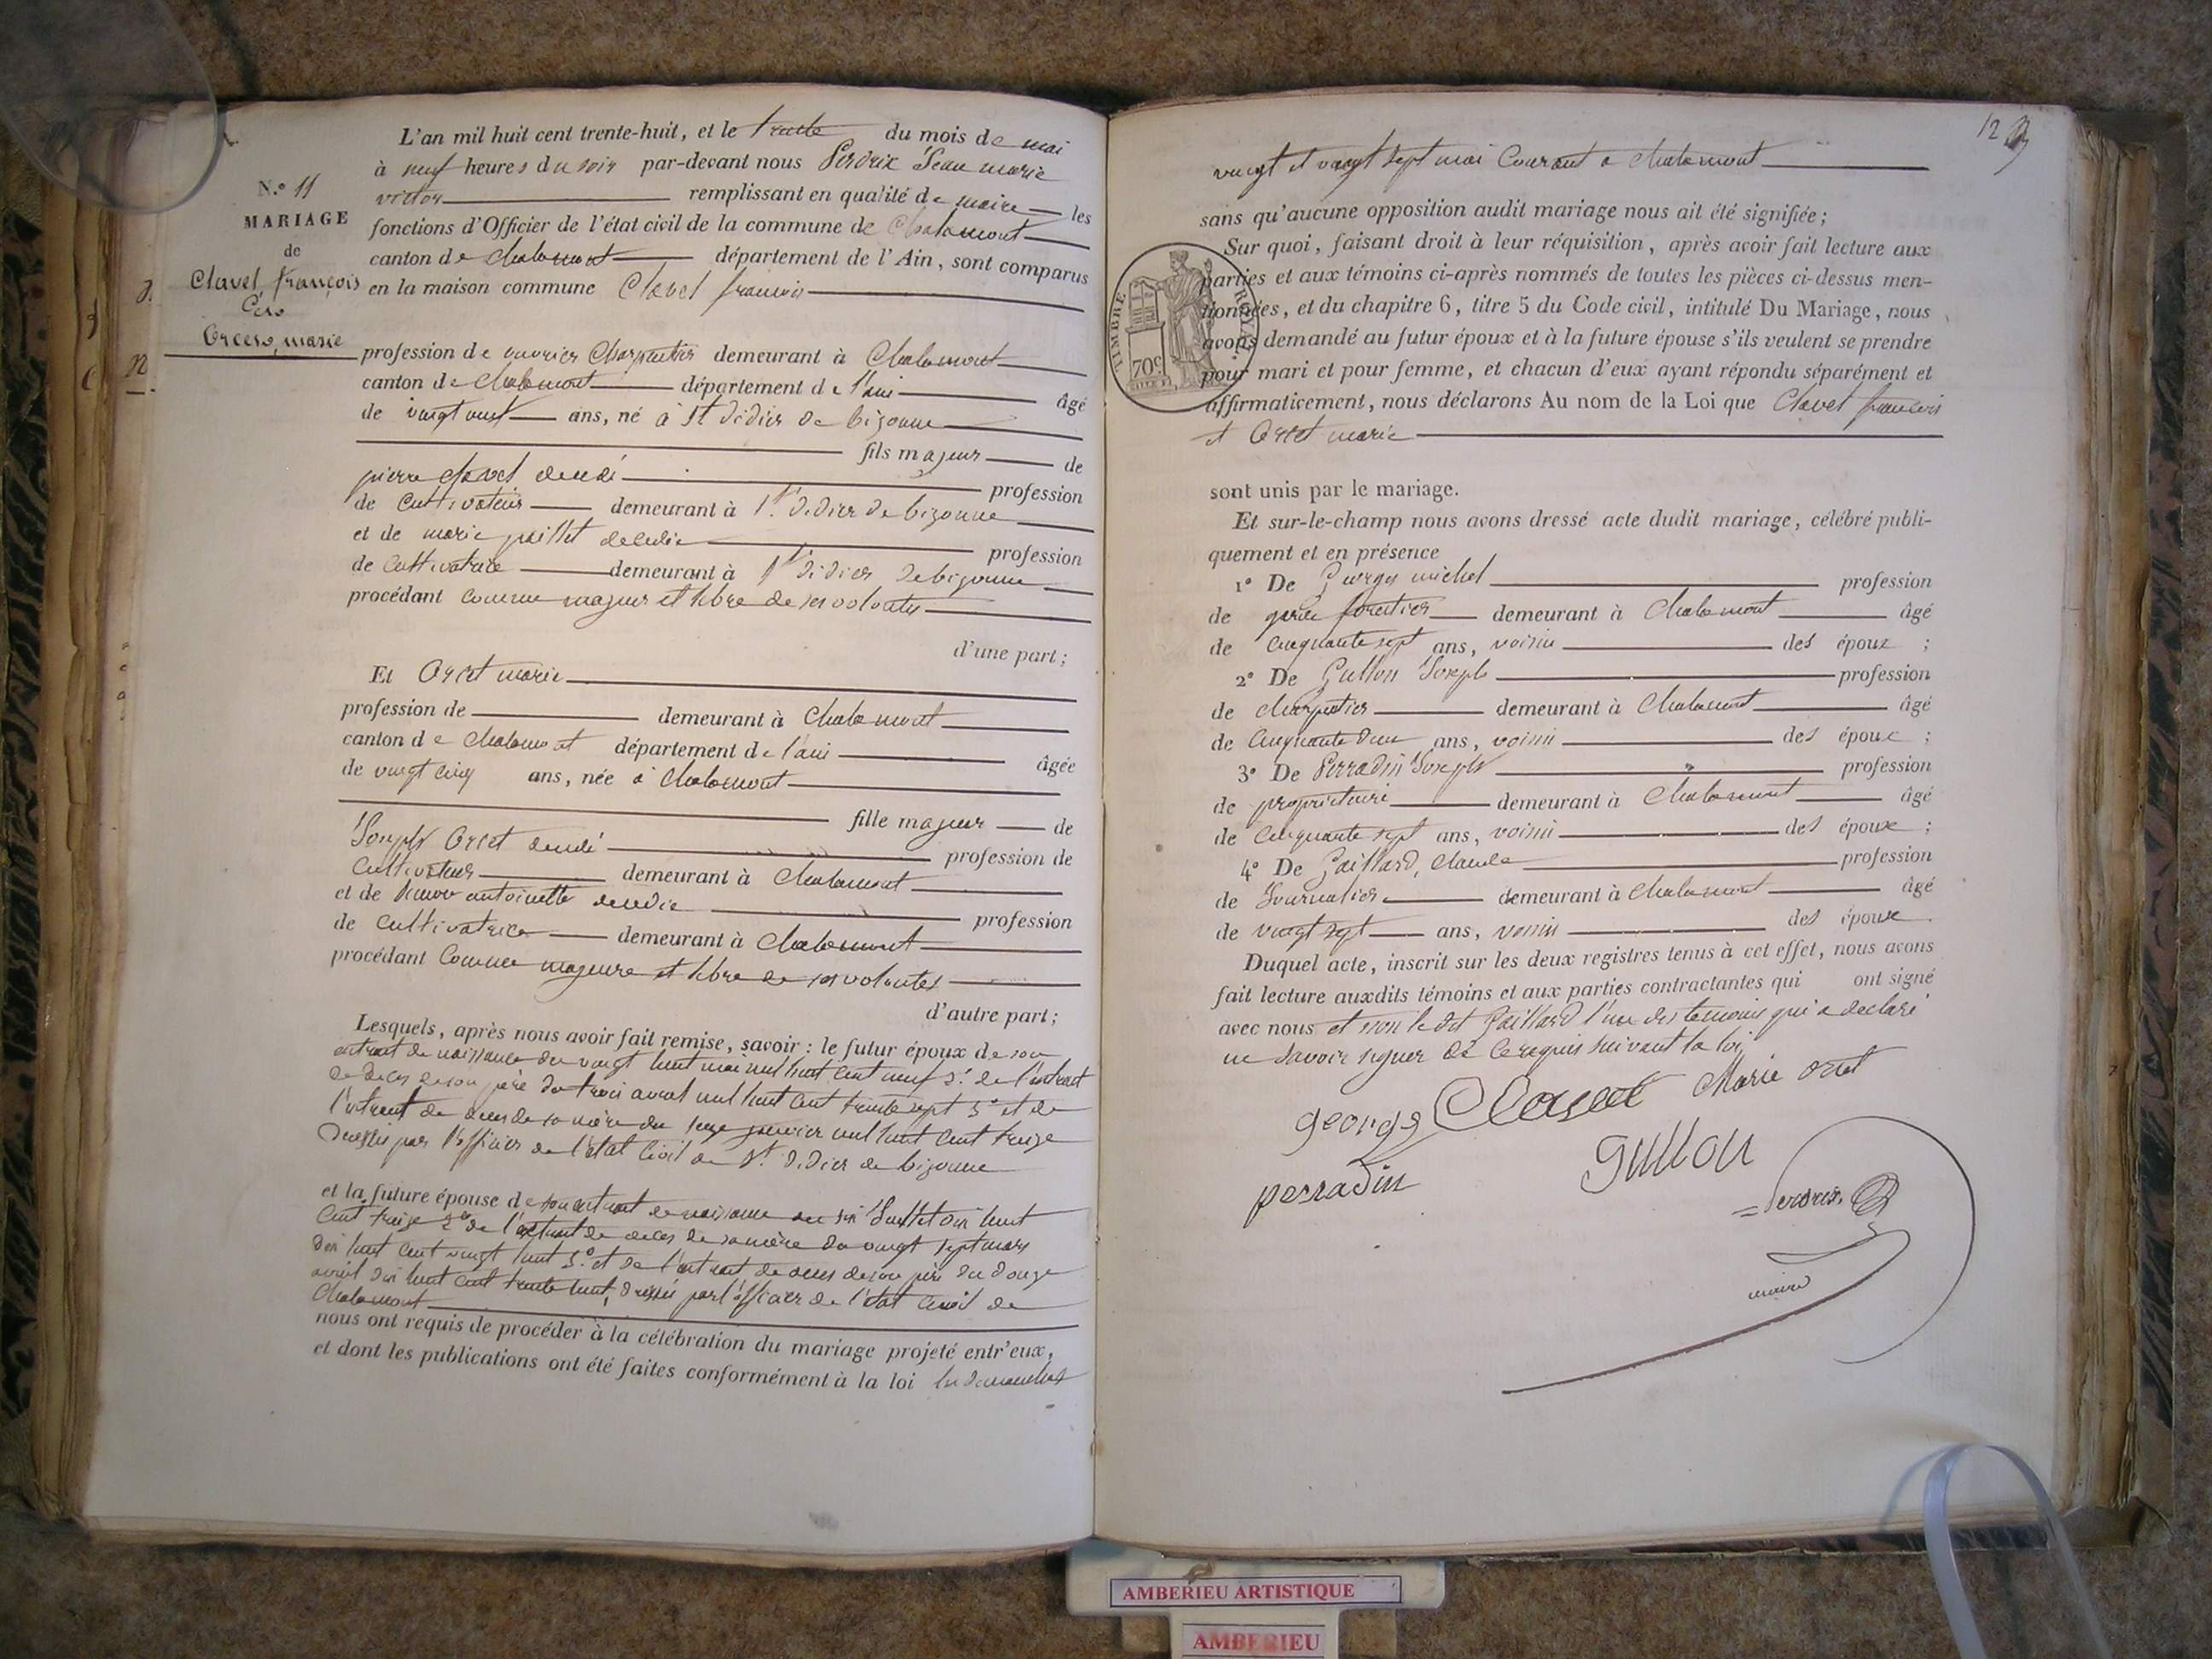 L'an mil huit cent trente-huit, et le trente du mois de mai
à neuf heures du soir par-devant nous Perdrix Jean marie
victor remplissant en qualité de maire les
N.º 11
MARIAGE
de
Clavel françois
&
Orcet, marie
fonctions d'Officier de l'état civil de la commune de Chalamont
canton de chalamont département de l'Ain, sont comparus
en la maison commune Clavel francois
profession de ouvrier Charpentier demeurant à Chalamont
canton de chalamont département de l'ain âgé
de vingt neuf ans, né à St didier de bizonne
fils majeur de
pierre clavel décédé profession
de cultivateur demeurant à St. didier de bizonne
et de marie paillet décédée profession
de cultivatrice demeurant à St didier de bizonne
procédant comme majeur et libre de ses volontés
d'une part;
Et Orcet marie
profession de demeurant à Chalamont
canton de chalamont département de l'ain âgée
de vingt cinq ans, née à chalamont
fille majeur de
Joseph Orcet décédé profession de
cultivateur demeurant à Chalamont
et de antoinette décédée profession
de cultivatrice demeurant à chalamont
procédant comme majeure et libre de ses volontés
d'autre part;
Lesquels, après nous avoir fait remise, savoir : le futur époux de son
extrait de naissance du vingt huit mai mil huit cent neuf 2º. de l'extrait
de décès de son père du trois avril mil huit cent trente sept 3º et de
l'extrait de décès de sa mère du seize janvier mil huit cent treize
dressés par l'officier de l'état civil de St. didier de bizonne
et la future épouse de son extrait de naissance du dix Juillet dix huit
cent treize 2º de l'extrait de décès de sa mère du vingt sept mars
dix huit cent vingt huit 3º. et de l'extrait de décès de son père du douze
avril dix huit cent trente huit, dressés par l'officier de l'état civil de
Chalamont
nous ont requis de procéder à la célébration du mariage projeté entr'eux,
et dont les publications ont été faites conformément à la loi les dimanches
12
vingt et vingt sept mai courant à chalamont
sans qu'aucune opposition audit mariage nous ait été signifiée;
Sur quoi, faisant droit à leur réquisition, après avoir fait lecture aux
parties et aux témoins ci-après nommés de toutes les pièces ci-dessus men-
tionnées, et du chapitre 6, titre 5 du Code civil, intitulé Du Mariage, nous
avons demandé au futur époux et à la future épouse s'ils veulent se prendre
pour mari et pour femme, et chacun d'eux ayant répondu séparément et
affirmativement, nous déclarons Au nom de la Loi que Clavel francois
et Orcet marie
TIMBRE ROYAL
70c
sont unis par le mariage.
Et sur-le-champ nous avons dressé acte dudit mariage, célébré publi-
quement et en présence
1º De michel profession
de garde forestier demeurant à Chalamont âgé
de cinquante sept ans, voisin des époux ;
2º De Guillon Joseph profession
de charpentier demeurant à Chalamont âgé
de cinquante deux ans, voisin des époux ;
3º De Perradin Joseph profession
de propriétaire demeurant à Chalamont âgé
de cinquante sept ans, voisin des époux ;
4º De Gaillard, claude profession
de Journalier demeurant à chalamont âgé
de vingt sept ans, voisin des époux.
Duquel acte, inscrit sur les deux registres tenus à cet effet, nous avons
fait lecture auxdits témoins et aux parties contractantes qui ont signé
avec nous et non le dit Gaillard l'un des temoins qui a declaré
ne savoir signer de ce requis suivant la loi
george Clavel Marie orcet
perradin Guillon
Perdrix
maire
AMBERIEU ARTISTIQUE
AMBERIEU